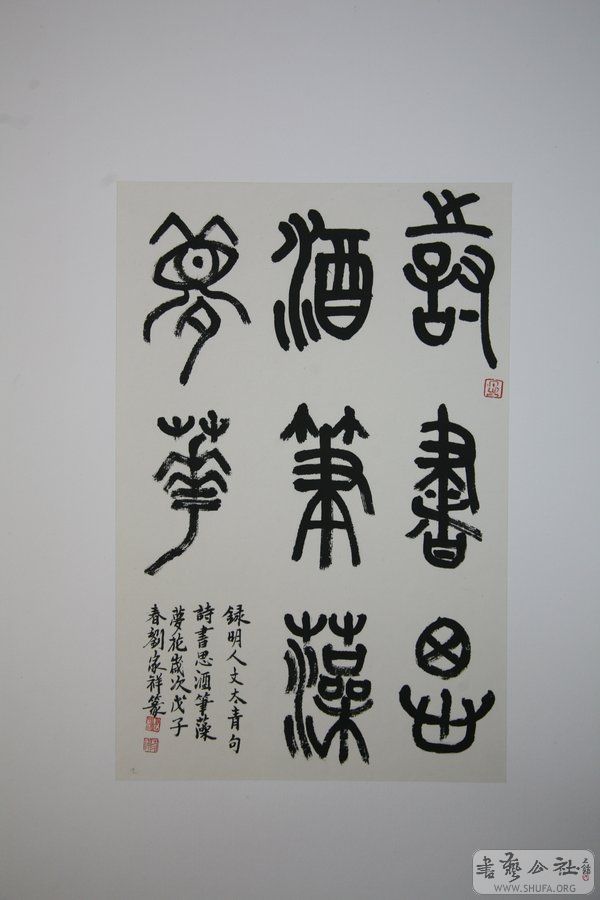 詩書思
酒筆藻
夢華
録明人文太青句
詩書思酒筆藻
夢花歲次戊子
春劉家祥篆
書藝公社
WWW.SHUFA.ORG